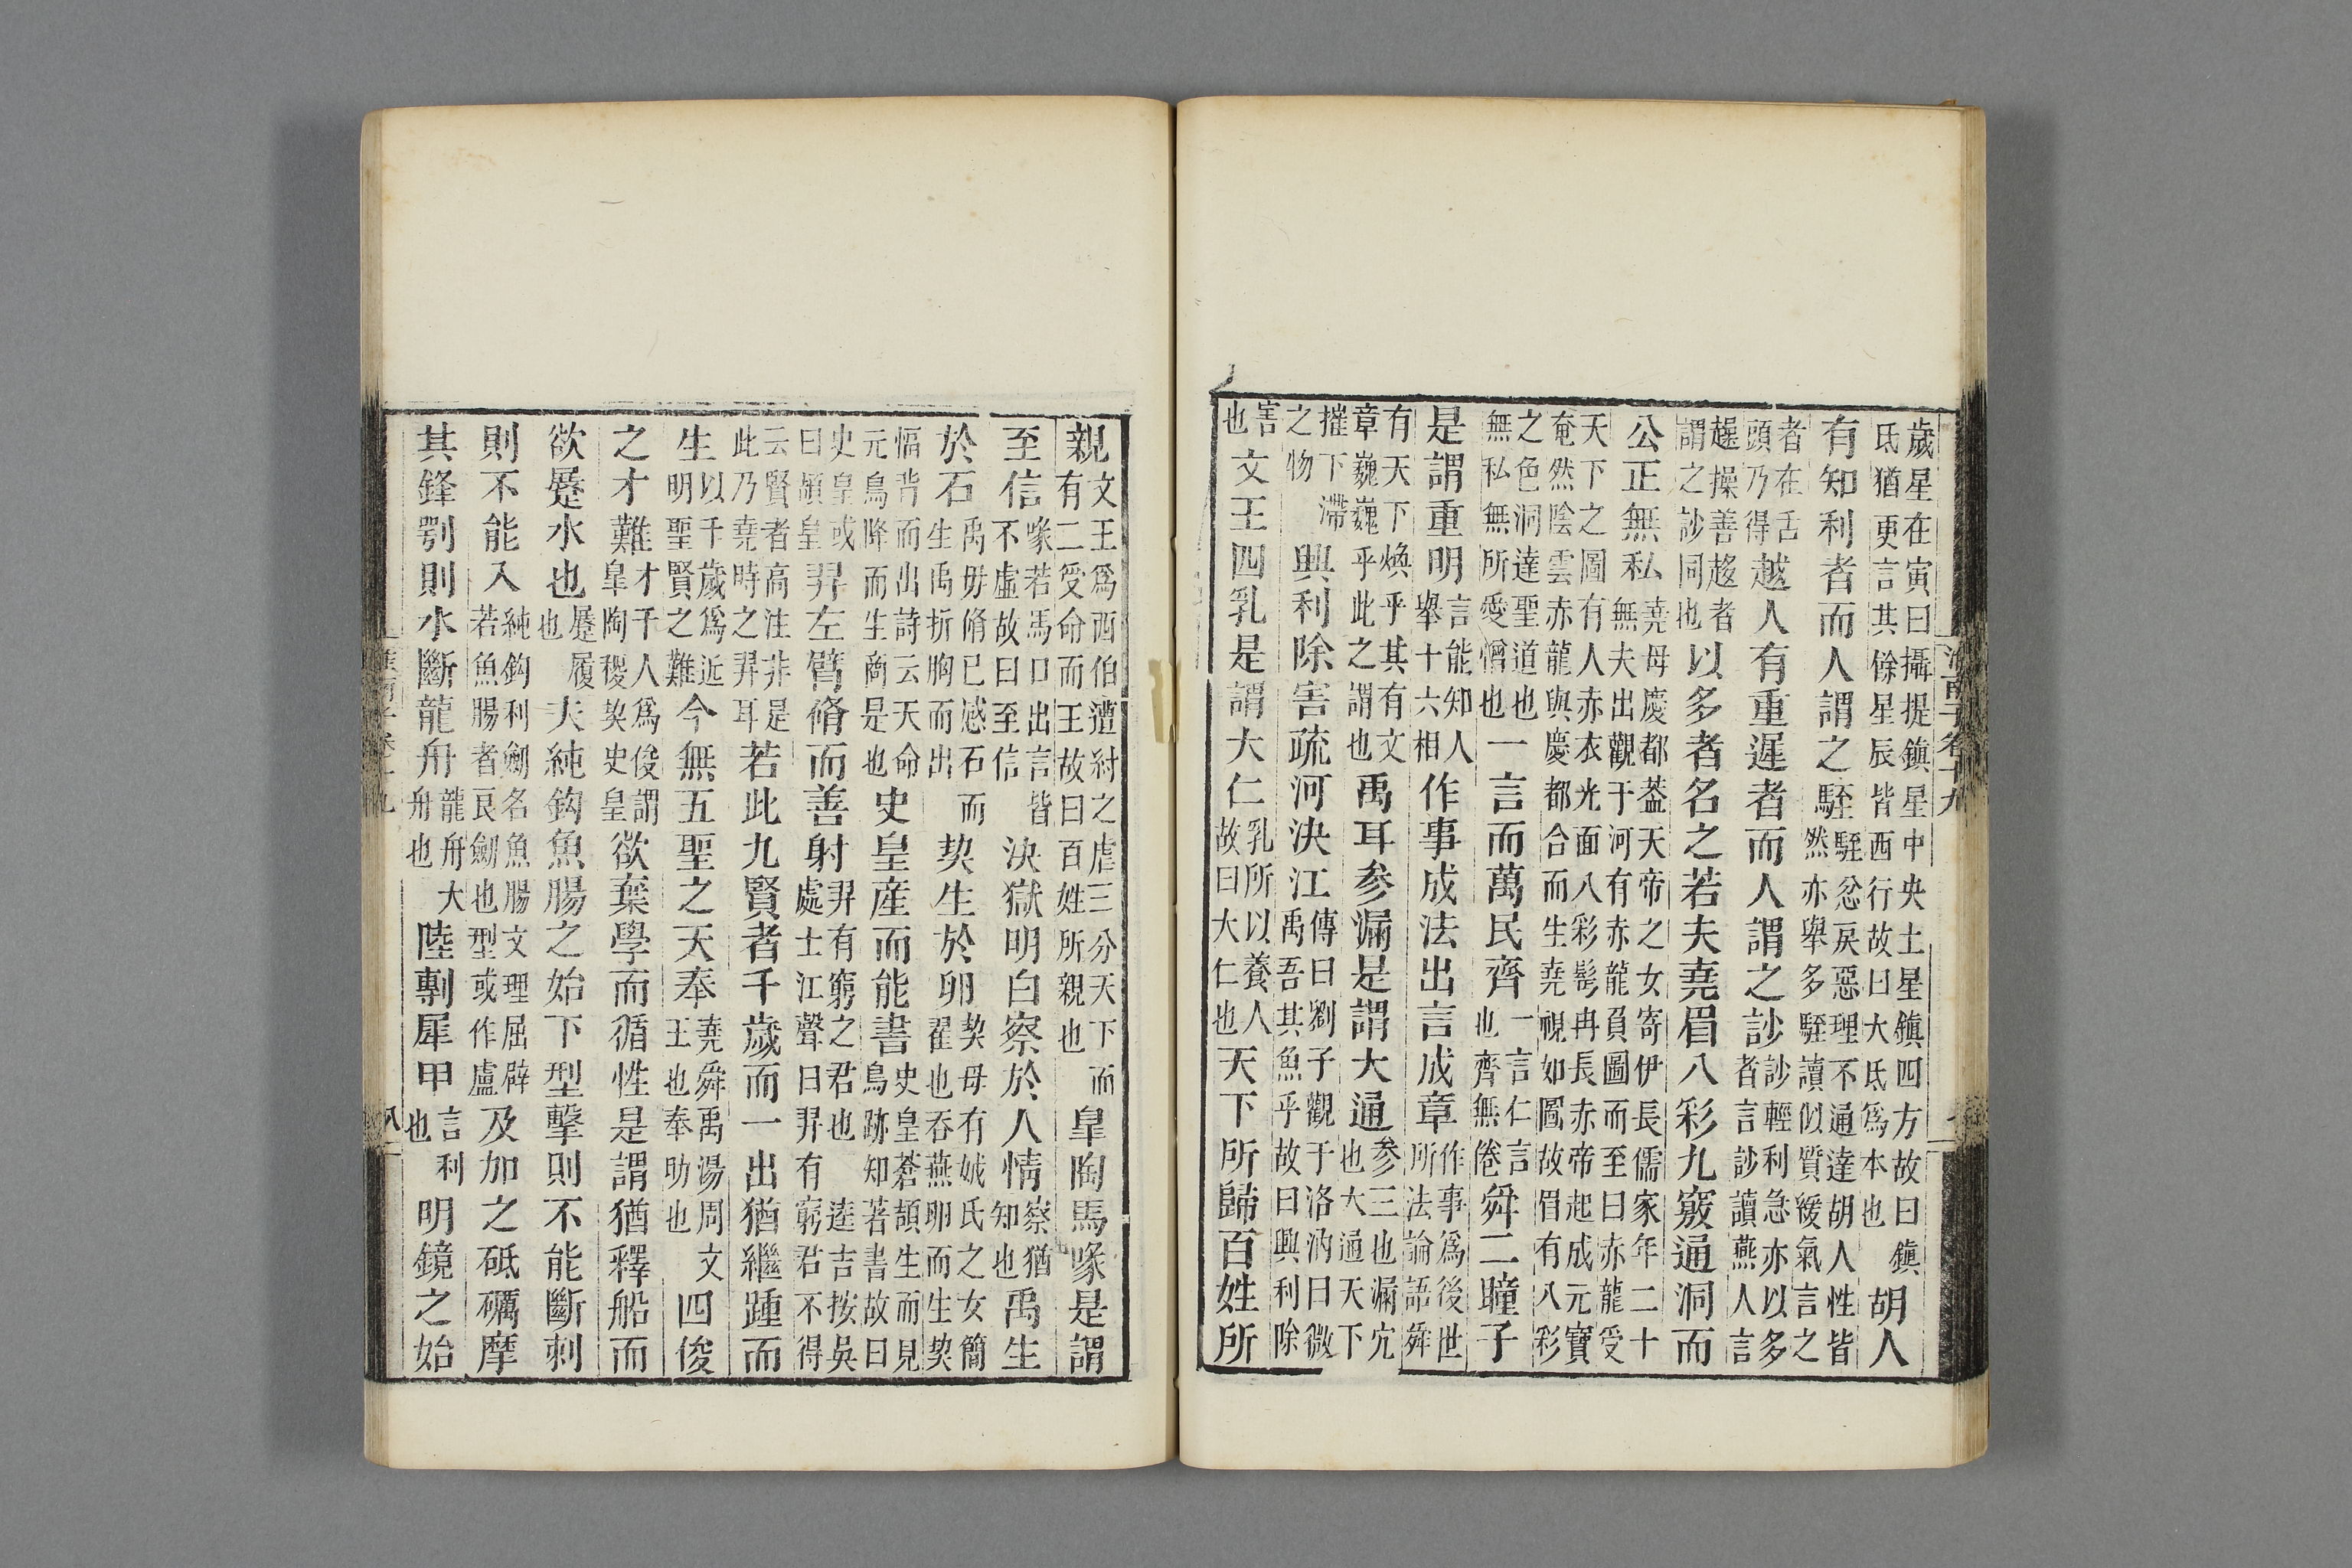 淮南子卷十九
歲星在寅曰攝提鎮星中央土星鎮四方故曰鎮氐猶更言其餘星辰皆西行故曰大氐爲本也胡人
有知利者而人謂之駤駤忿戾惡理不通達胡人性皆然亦舉多駤讀似質緩氣言之
者在舌頭乃得越人有重遲者而人謂之訬訬輕利急亦以多者言訬讀燕人言
趮操善趍者謂之訬同也以多者名之若夫堯眉八彩九竅通洞而
公正無私堯母慶都葢天帝之女寄伊長儒家年二十無夫出觀于河有赤龍負圖而至曰赤龍受
天下之圖有人赤衣光面八彩髩冉長赤帝起成元寶奄然陰雲赤龍與慶都合而生堯視如圖故眉有八彩
之色洞達聖道也無私無所愛憎也一言而萬民齊一言仁言也齊無倦舜二瞳子
是謂重明言能知人舉十六相作事成法出言成章作事爲後世所法論語舜
有天下煥乎其有文章巍巍乎此之謂也禹耳參漏是謂大通參三也漏穴也大通天下
摧下滯之物興利除害疏河決江傳曰劉子觀于洛汭曰微禹吾其魚乎故曰興利除
害也文王四乳是謂大仁乳所以養人故曰大仁也天下所歸百姓所
親文王爲西伯遭紂之虐三分天下而有二受命而王故曰百姓所親也皐陶馬喙是謂
至信喙若馬口出言皆不虛故曰至信決獄明白察於人情察猶知也禹生
於石禹母脩己感石而生禹折胸而出契生於卵契母有娀氏之女簡翟也吞燕卵而生契
愊背而出詩云天命元鳥降而生商是也史皇產而能書史皇蒼頡生而見鳥跡知著書故曰
史皇或曰頡皇羿左臂脩而善射羿有窮之君也逵吉按吳處士江聲曰羿有窮君不得
云賢者高注非是此乃堯時之羿耳若此九賢者千歲而一出猶繼踵而
生以千歲爲近明聖賢之難今無五聖之天奉堯舜禹湯周文王也奉助也四俊
之才難才千人爲俊謂皐陶稷契史皇欲棄學而循性是謂猶釋船而
欲蹷水也蹷履也夫純鈎魚腸之始下型擊則不能斷刺
則不能入純鈎利劒名魚腸文理屈辟若魚腸者良劒也型或作盧及加之砥礪摩
其鋒鄂則水斷龍舟龍舟大舟也陸剸犀甲言利也明鏡之始